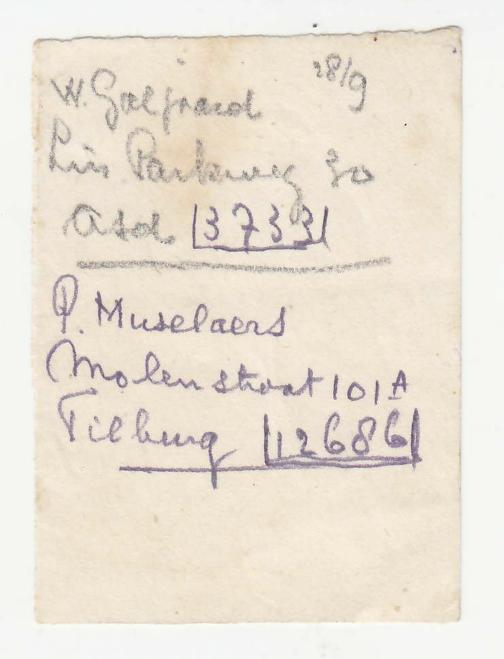 28/9
W. Galjaard
Lin Parkweg 30
Asd. 3733
P. Muselaers
Molenstraat 101A
Tilburg 12686